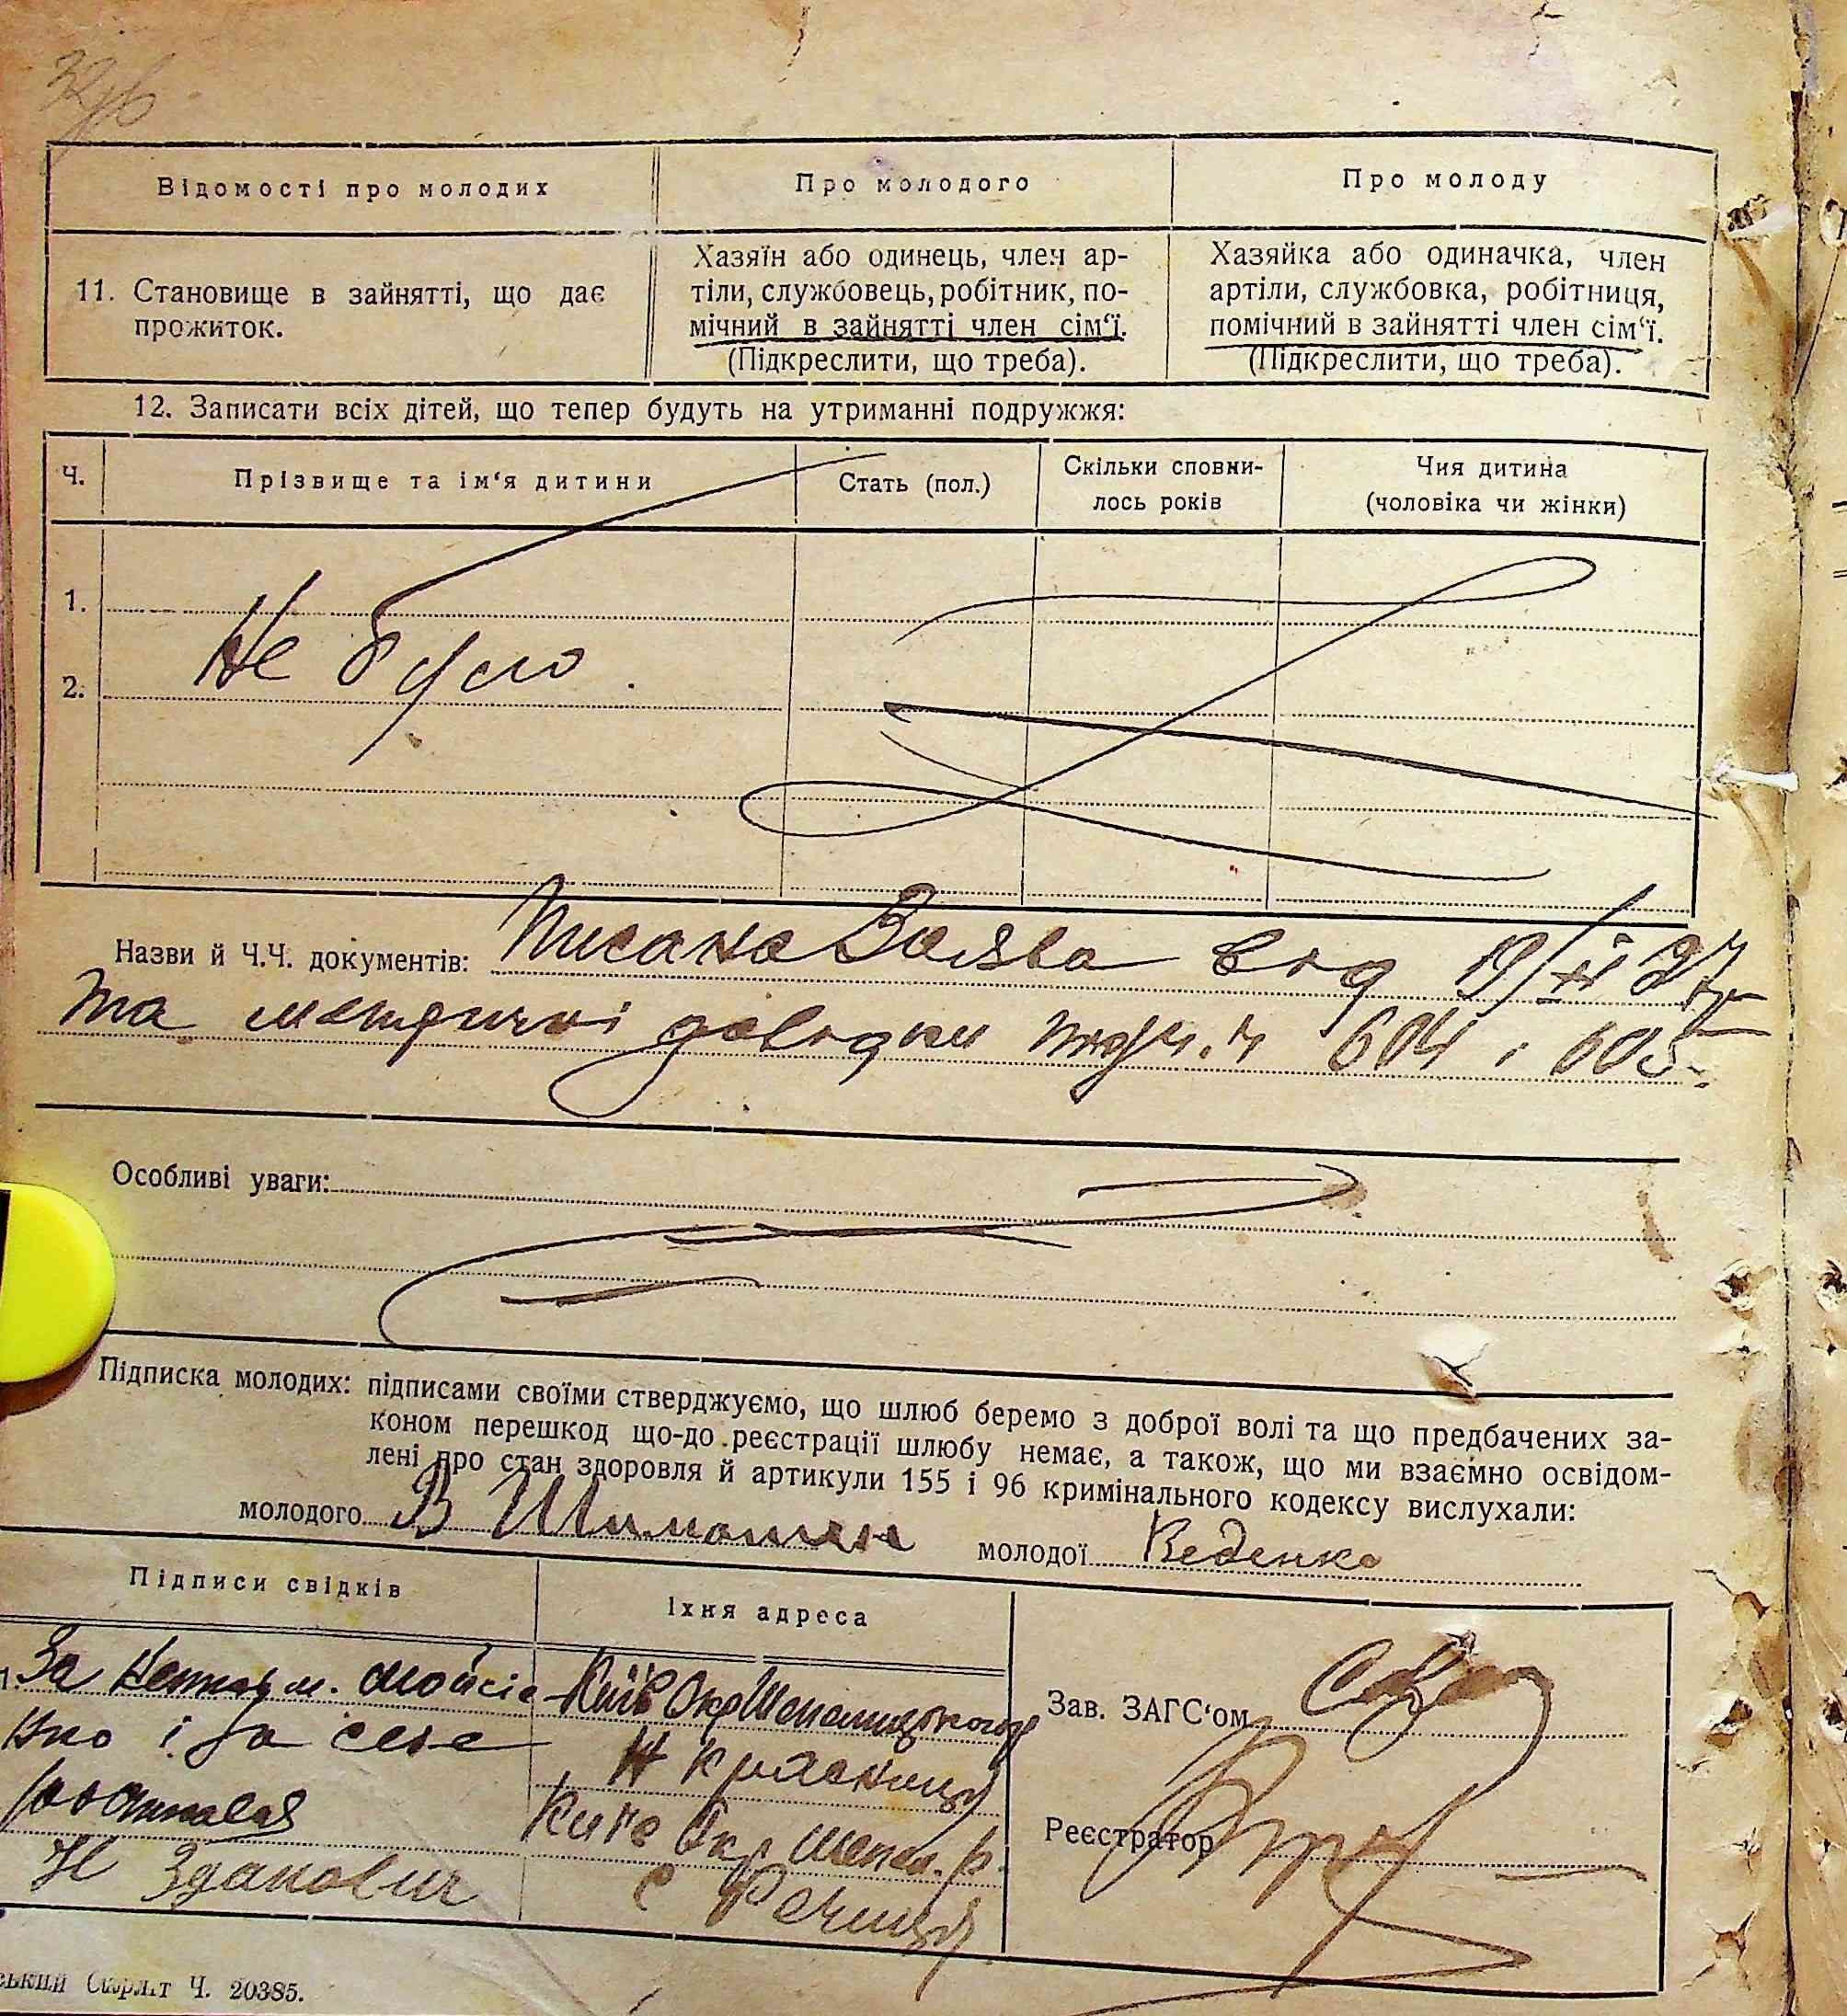 Відомості про молодих
Про молодого
Про молоду
11. Становище в зайнятті, що дає
прожиток.
Хазяїн або одинець, член ар-
тіли, службовець, робітник, по-
мічний в зайнятті член сім‘ї.
(Підкреслити, що треба).
Хазяйка або одиначка, член
артіли, службовка, робітниця,
помічний в зайнятті член сім‘ї.
(Підкреслити, що треба).
12. Записати всіх дітей, що тепер будуть на утриманні подружжя:
Ч.
Прізвище та ім‘я дитини
Стать (пол.)
Скільки сповни-
лось років
Чия дитина
(чоловіка чи жінки)
1.
Не було
2.
Назви й Ч.Ч. документів: Писана Заява від 19/XI 27
та метричні довідки 604 і 605.
Особливі уваги:
Підписка молодих: підписами своїми стверджуємо, що шлюб беремо з доброї волі та що предбачених за-
коном перешкод що-до реєстрації шлюбу немає, а також, що ми взаємно освідом-
лені про стан здоровля й артикули 155 і 96 кримінального кодексу вислухали:
молодого В
молодої
Підписи свідків
Їхня адреса
За
і за себе
Н Зданович
Київ Окр
Н Красниця
Окр Шепел. р.
с Речиця
Зав. ЗАГС‘ом
Реєстратор
Ч. 20385.